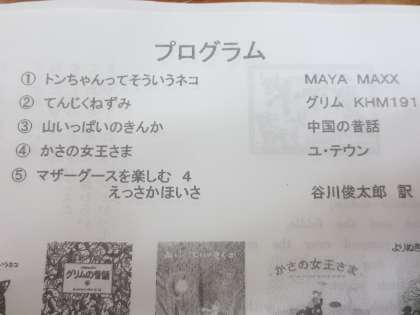 プログラム
① トンちゃんってそういうネコ MAYA MAXX
② てんじくねずみ グリム KHM191
③ 山いっぱいのきんか 中国の昔話
④ かさの女王さま ユ・テウン
⑤ マザーグースを楽しむ 4
えっさかほいさ 谷川俊太郎 訳
グリムの昔話
かさの女王さま
よりぬき